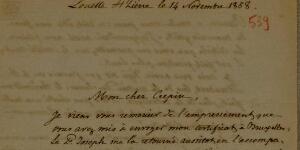 Louette St Pierre le 14 Novembre 1888.
539
Mon cher Crépin,
Je viens vous remercier de l'empressement que
vous avez mis à envoyer mon certificat à Bruxelles,
le Dr Joseph me l'a retourné aussitôt en l'accompa-